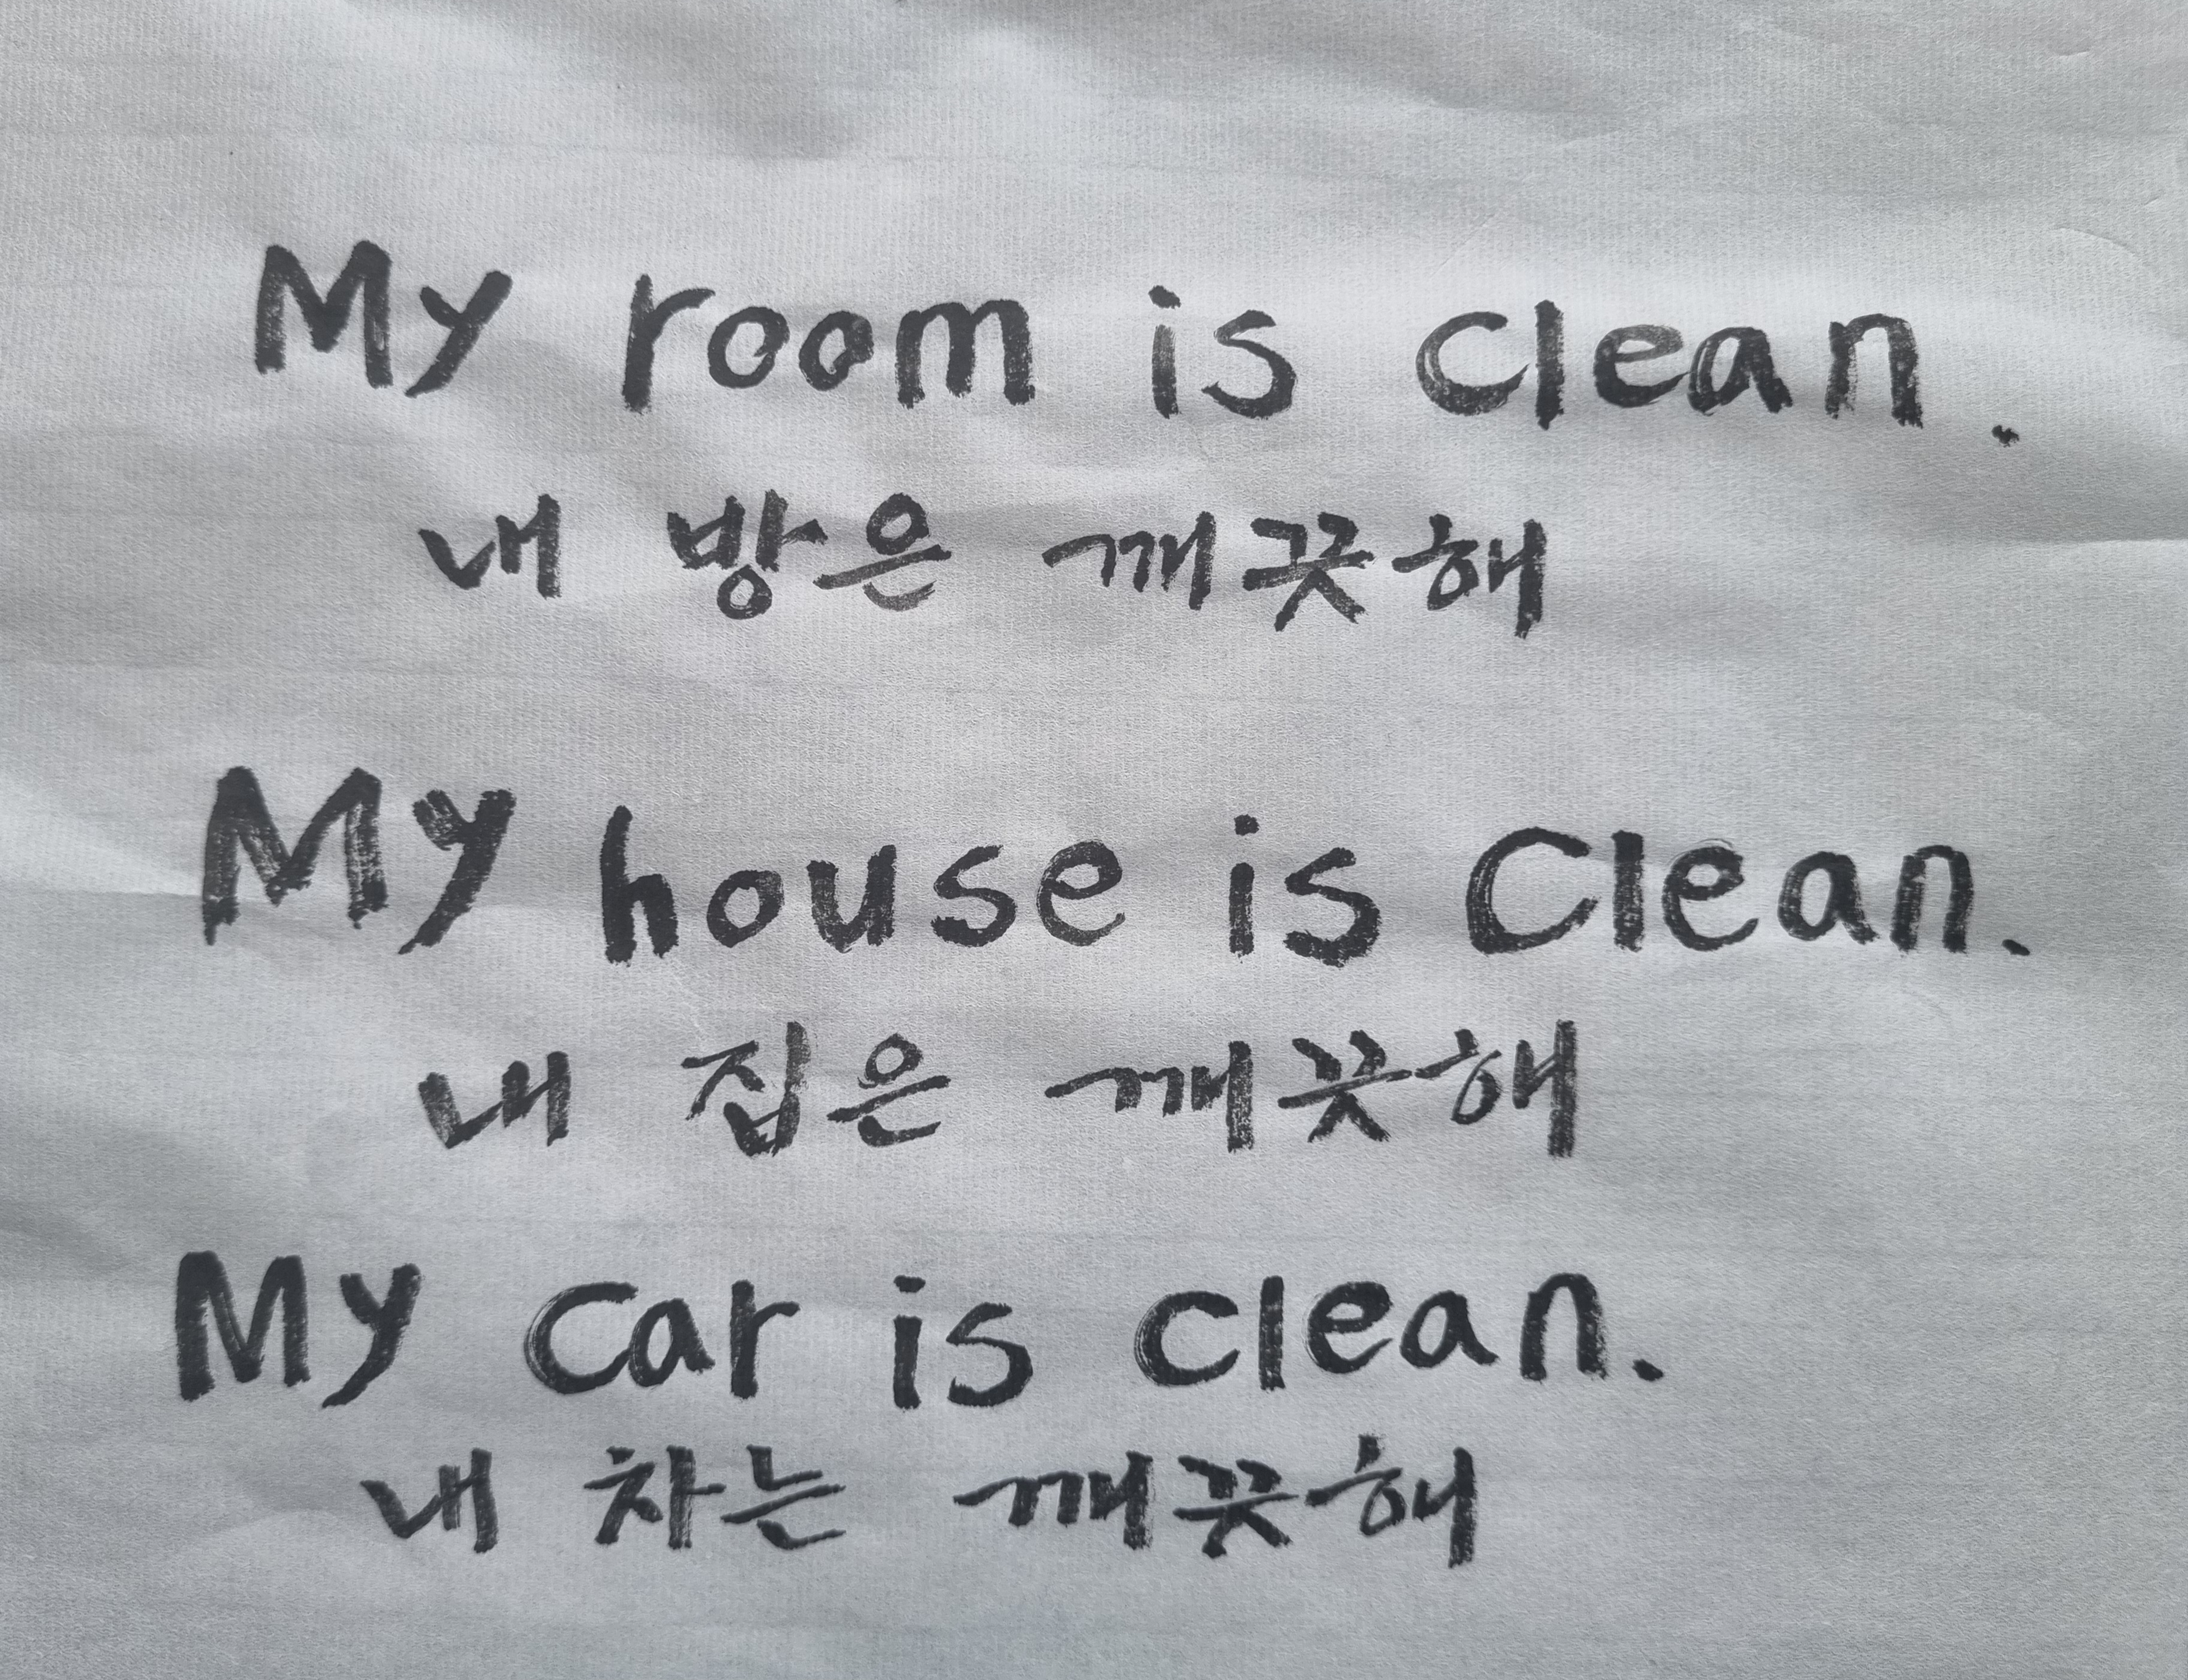 My room is clean.
내 방은 깨끗해
My house is Clean.
내 집은 깨끗해
My car is clean.
내 차는 깨끗해